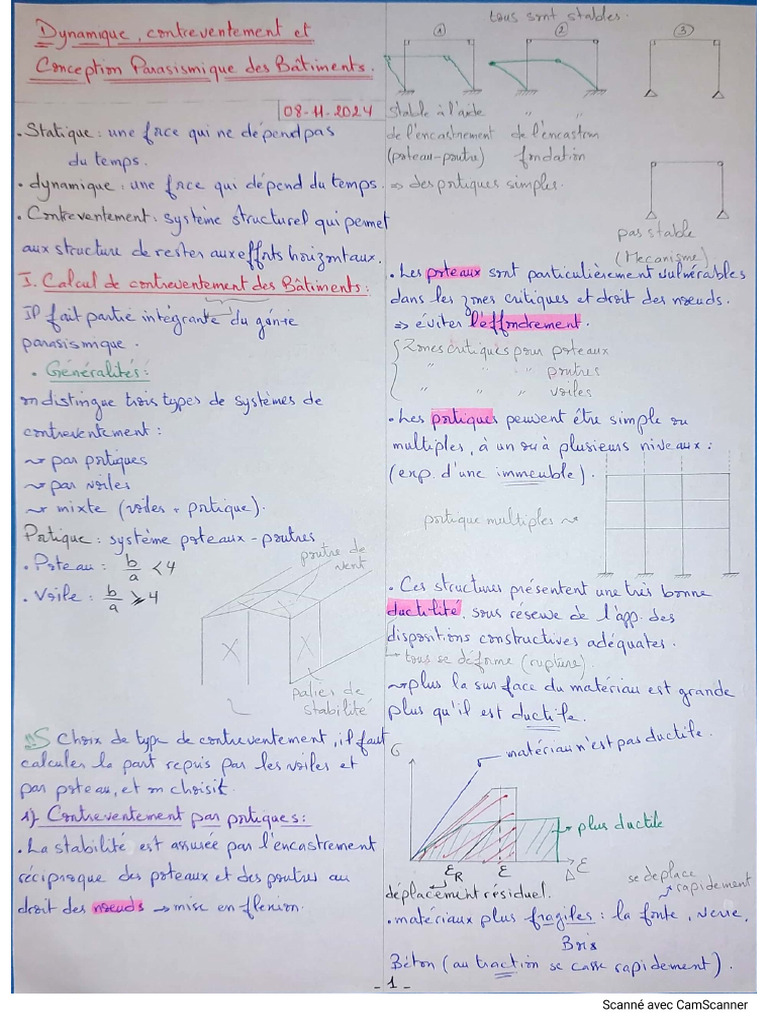 Dynamique, contreventement et
Conception Parasismique des Bâtiments.
08-11-2024
• Statique : une force qui ne dépend pas
du temps.
• dynamique : une force qui dépend du temps.
• Contreventement : système structurel qui permet
aux structure de rester aux efforts horizontaux.
I. Calcul de contreventement des Bâtiments :
Il fait partie intégrante du génie
parasismique.
• Généralités :
on distingue trois types de systèmes de
contreventement :
~ par portiques
~ par voiles
~ mixte (voiles + portique).
Portique : système poteaux - poutres
• Poteau : b/a < 4
• Voile : b/a ⩾ 4
poutre de
vent
palies de
stabilité
Choix de type de contreventement, il faut
calculer la part repris par les voiles et
par poteau, et on choisit.
1) Contreventement par portiques :
• La stabilité est assurée par l'encastrement
réciproque des poteaux et des poutres au
droit des nœuds → mise en flexion.
tous sont stables.
① ② ③
Stable à l'aide " "
de l'encastrement de l'encastrem
(poteau-poutre) fondation
⇒ des portiques simples.
pas stable
(Mecanisme)
• Les poteaux sont particulièrement vulnérables
dans les zones critiques et droit des nœuds.
⇒ éviter l'effondrement.
Zones critiques pour poteaux
" " " poutres
" " " voiles
• Les portiques peuvent être simple ou
multiples, à un ou à plusieurs niveaux :
(exp. d'une immeuble).
portique multiples ~
• Ces structures présentent une très bonne
ductilité, sous réserve de l'app. des
dispositions constructives adéquates.
↳ tous se déforme (rupture).
~ plus la surface du matériau est grande
plus qu'il est ductile.
σ
matériau n'est pas ductile.
→ plus ductile
εR ε Δε
déplacement résiduel.
se deplace
rapidement
• matériaux plus fragiles : la fonte, verre,
Bois
Béton (au traction se casse rapidement).
- 1 -
Scanné avec CamScanner